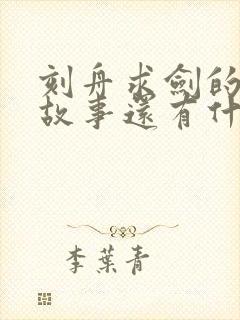 刻舟求劍的
故事還有什
李葉青